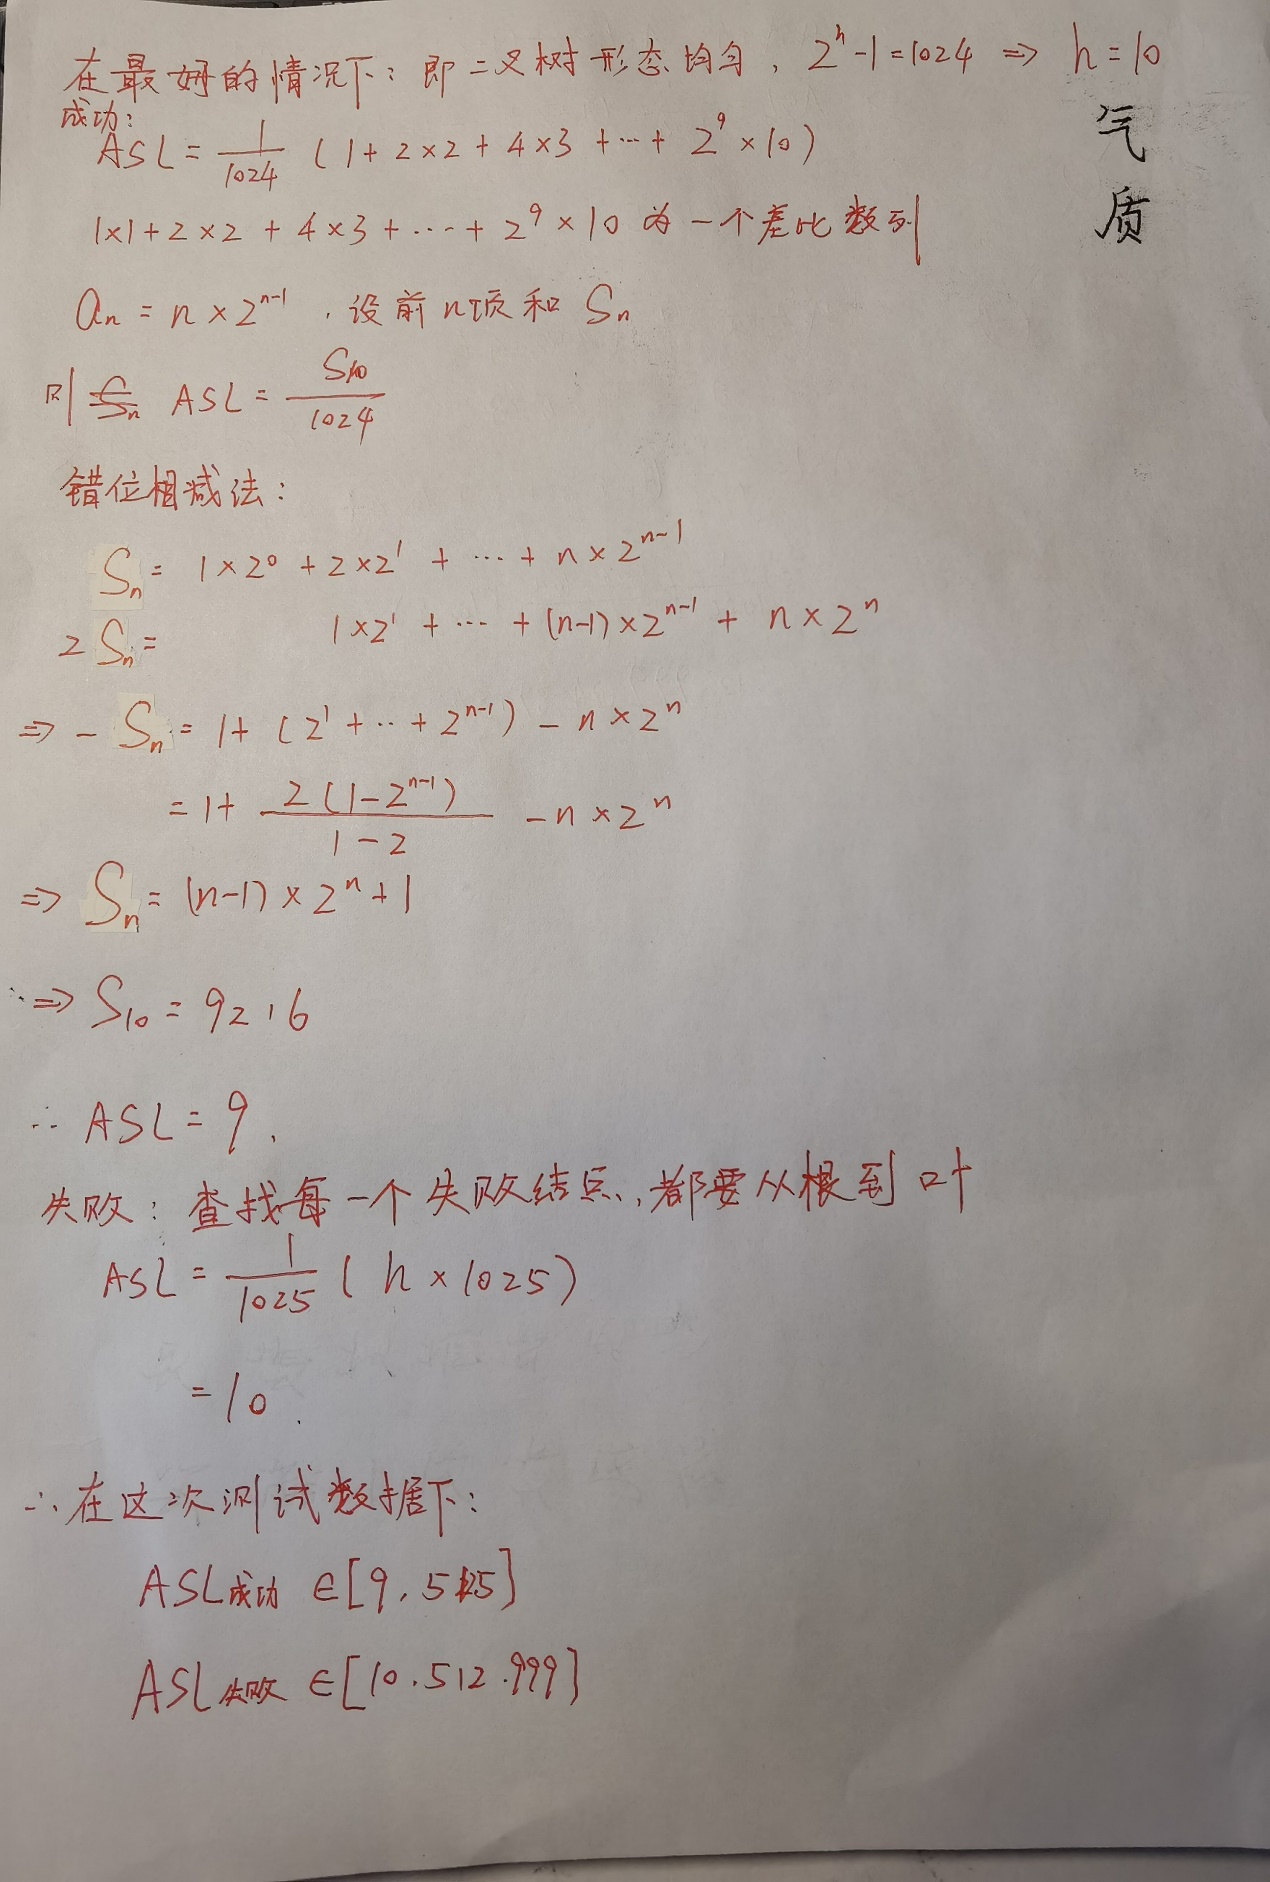 在最好的情况下：即二叉树形态均匀，2^h-1=1024 ⇒ h=10
成功：
ASL = 1/1024 (1+2×2+4×3+…+2^9×10)
1×1+2×2+4×3+…+2^9×10 为一个差比数列
气
质
a_n = n×2^{n-1}，设前n项和 S_n
则 ASL = S_10/1024
错位相减法：
S_n = 1×2^0+2×2^1+…+n×2^{n-1}
2S_n = 1×2^1+…+(n-1)×2^{n-1}+n×2^n
⇒ -S_n = 1+(2^1+…+2^{n-1})-n×2^n
= 1+ 2(1-2^{n-1})/(1-2) -n×2^n
⇒ S_n = (n-1)×2^n+1
∴⇒ S_10 = 9216
∴ ASL = 9.
失败：查找每一个失败结点，都要从根到叶
ASL = 1/1025 (h×1025)
= 10.
∴ 在这次测试数据下：
ASL成功 ∈[9,
ASL失败 ∈[10.512.999]